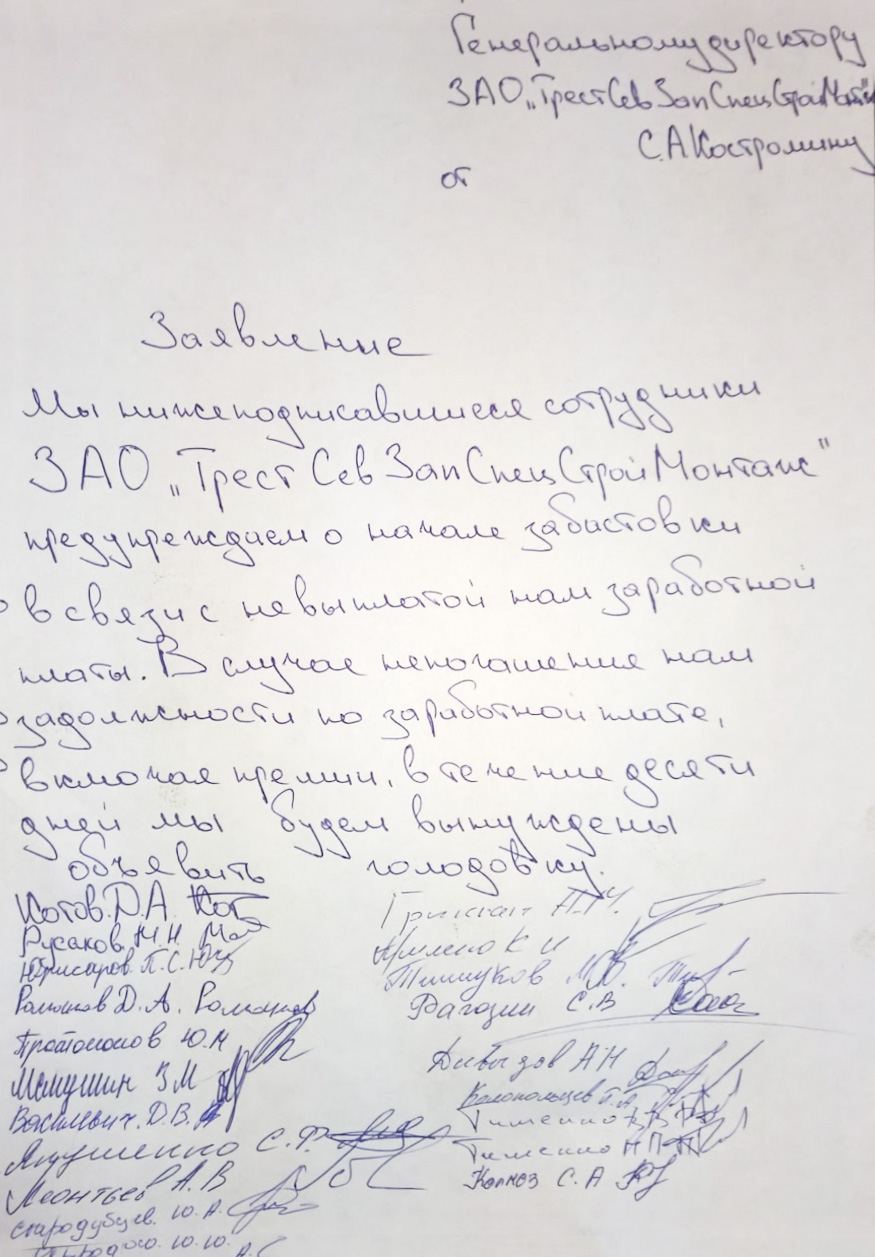 Генеральному директору
ЗАО „ТрестСевЗапСпецСтройМонтаж"
С.А Костромину
от
Заявление
Мы нижеподписавшиеся сотрудники
ЗАО „ТрестСевЗапСпецСтройМонтаж"
предупреждаем о начале забастовки
в связи с невыплатой нам заработной
платы. В случае непогашения нам
задолжности по заработной плате,
включая премии, в течение десяти
дней мы будем вынуждены
объявить голодовку.
Котов.Д.А.
Русаков М.Н.
П.С.
Д.А.
Ю.М
Мамушин З.М
Василевич. Д.В.
Якушенко С.Ф.
Леонтьев А.В
Стародубцев. Ю.А.
Ю.Ю.
К И
Тишуков М.В.
Рагозин С.В
Давыдов А Н
Тимченко В В
Тимченко Н П
С.А